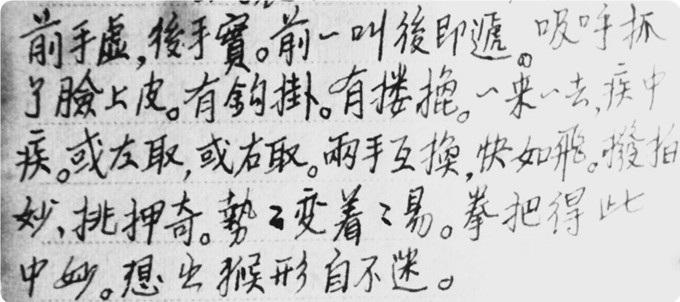 前手虛,後手實。前一叫後即遞。吸呼抓
了臉上皮。有鈎掛。有摟挽。一来一去,疾中
疾。或左取,或右取。兩手互換,快如飛。撥拍
妙、挑押奇。勢〻変着〻易。拳把得此
中妙。想出猴形自不迷。